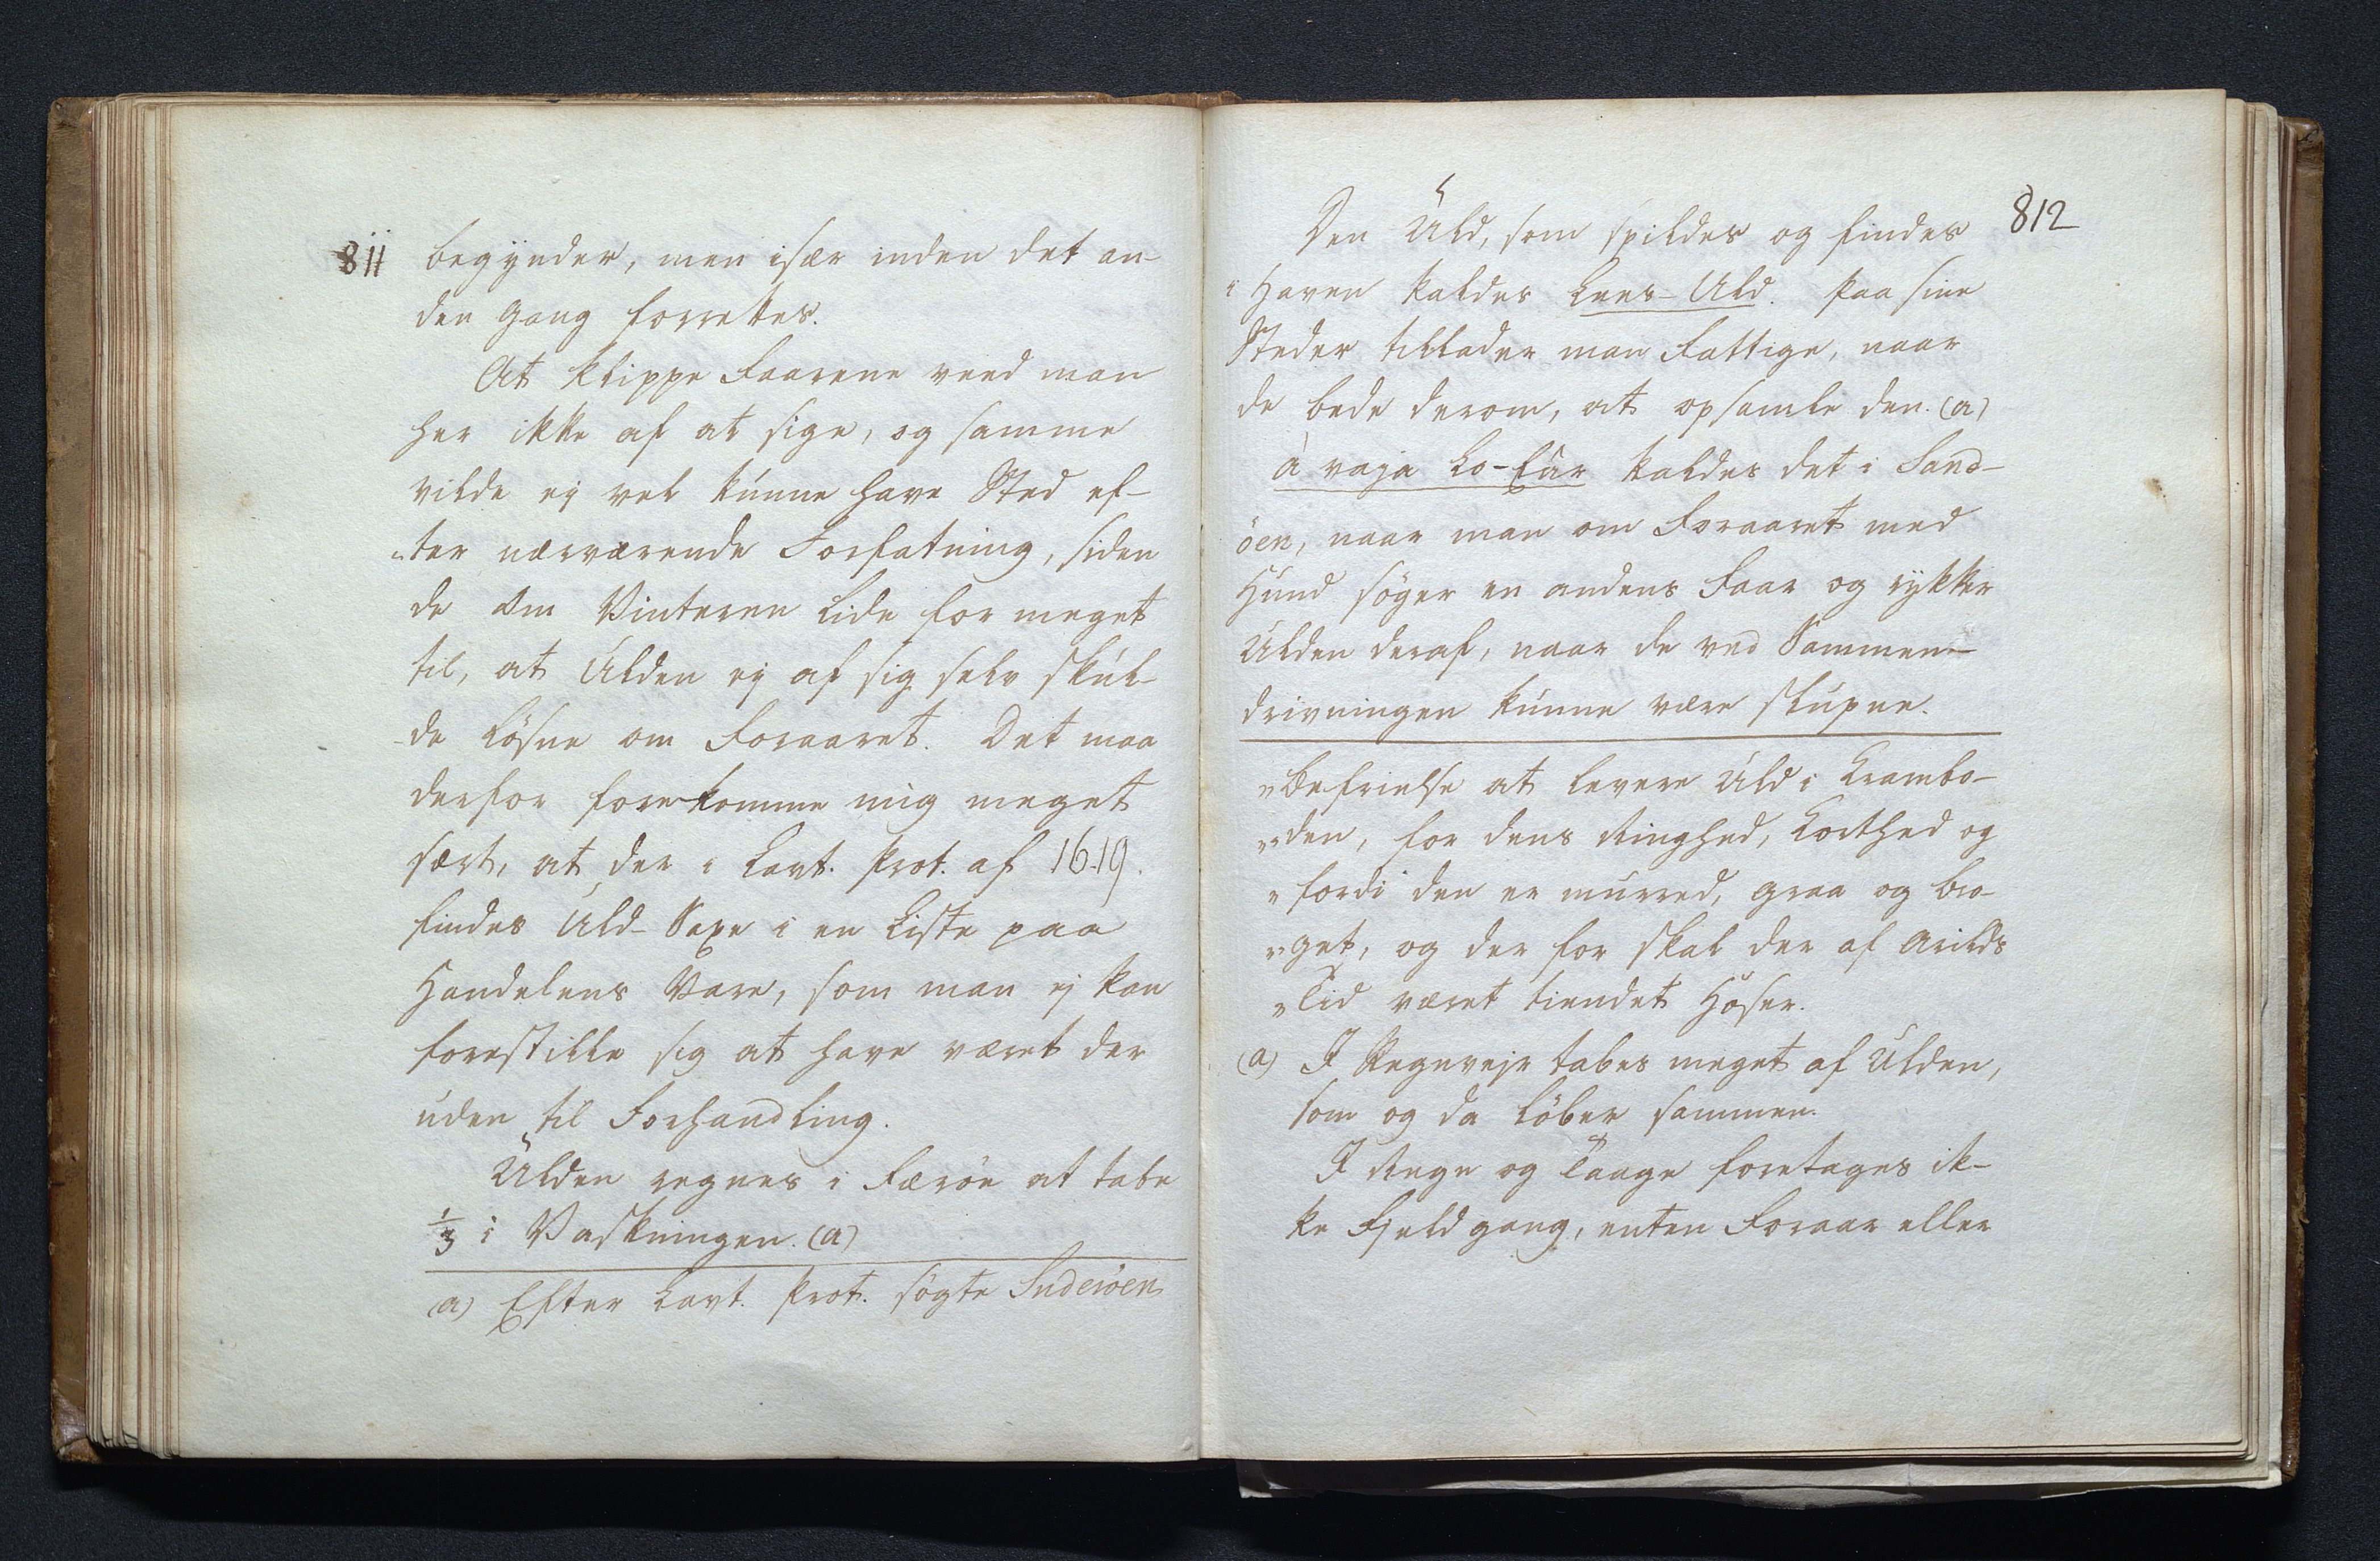 811
begynder, men især inden det an-
den Gang forrettes.
At klippe Faarene veed man
her ikke af at sige, og samme
vilde ej vel kunne have Sted ef-
ter nærværende Forfatning, siden
de om Vinteren lide for meget
til, at Ulden ej af sig selv skul-
de løsne om Foraaret. Det maa
derfor forekomme mig meget
sært, at der i Lavt. Prot. af 1619.
findes Uld-Saxe i en Liste paa
Handelens Vare, som man ej kan
forestille sig at have været der
uden til Forhandling.
Ulden regnes i Færøe at tabe
1/3 i Vaskningen. (a)
(a) Efter Lavt. Prot. søgte Suderöen
812
Den Uld, som spildes og findes
i Haven kaldes Lees-Uld. Paa sine
Steder tillader man Fattige, naar
de bede derom, at opsamle den. (a)
à raja Lo-Eûr kaldes det i Sand-
öen, naar man om Foraaret med
Hund söger en andens Faar og rykker
Ulden deraf, naar de ved Sammen-
drivningen kunne være slupne.
"Befrielse at levere Uld i Krambo-
"den, for dens Ringhed, Korthed og
"fordi den er murred, graa og bro-
"get, og der for skal der af Arilds
"Tid været tiendet Hoser.
(a) I Regnvejr tabes meget af Ulden,
som og da löber sammen.
I Regn og Taage foretages ik-
ke Fjeldgang, enten Foraar eller